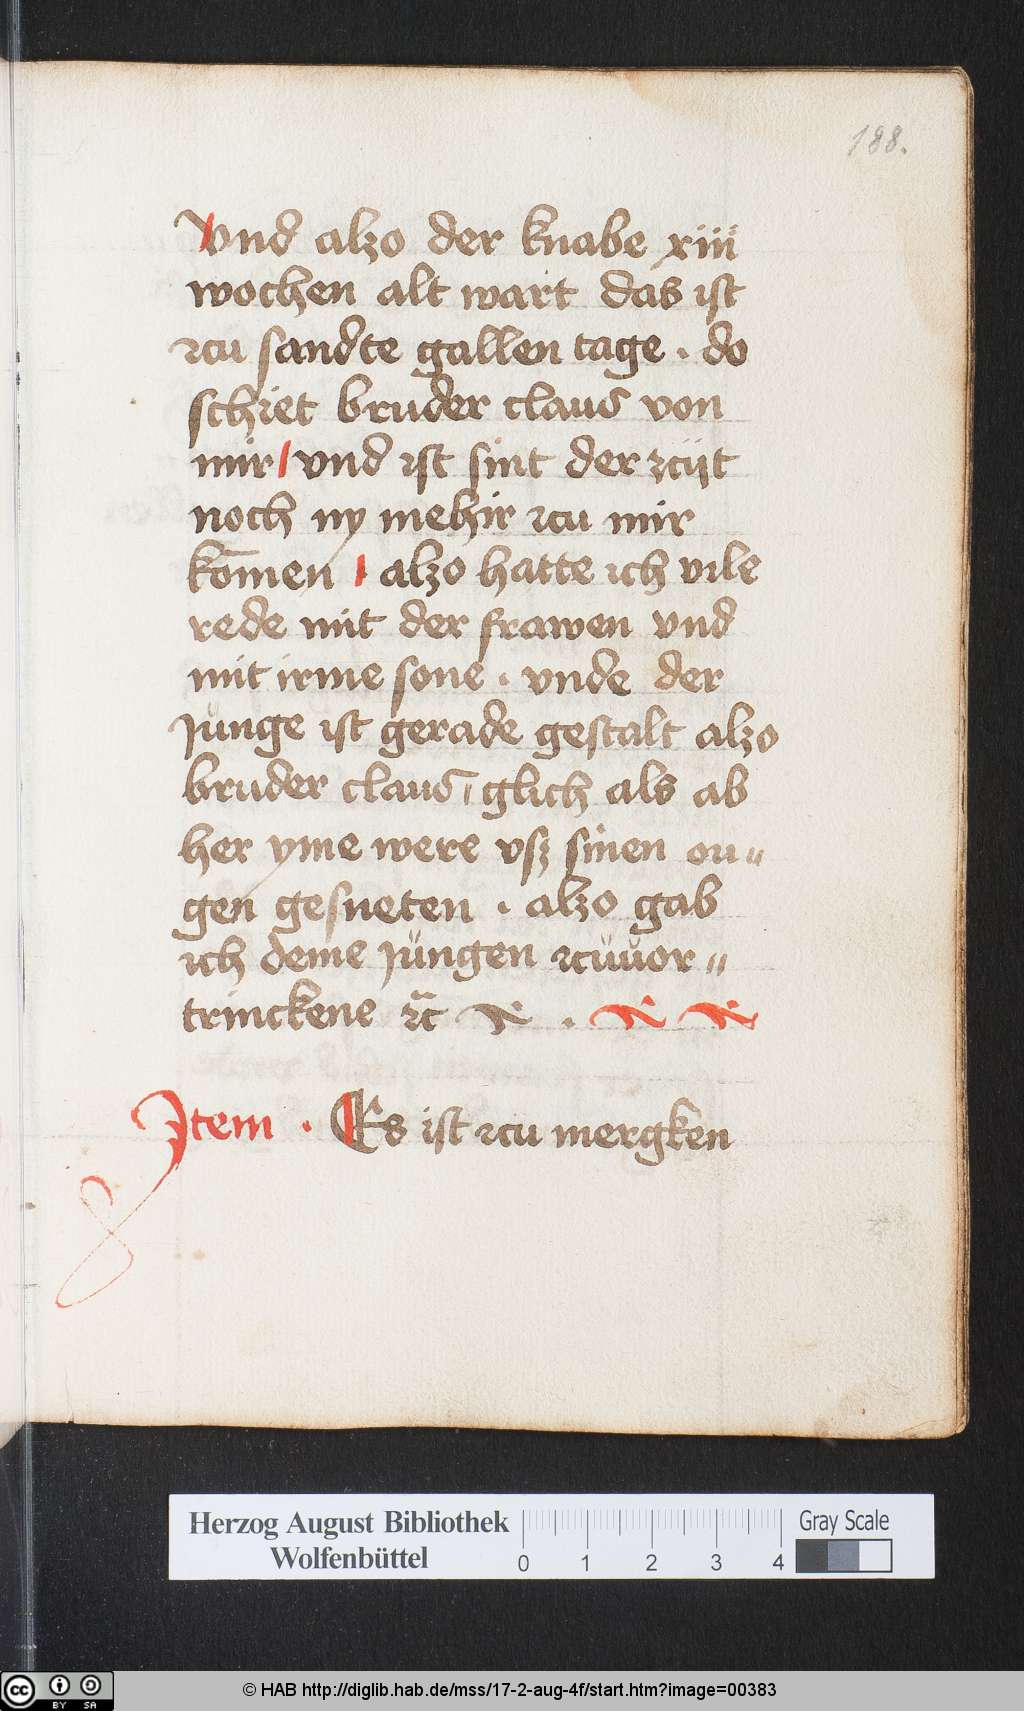 188.
Vnd alzo der knabe xiii
wochen alt wart das ist
zcu sandte gallen tage . do
schiet bruder claus von
mir / vnd ist sint der zcijt
noch ny mehir zcu mir
kōmen / alzo hatte ich vile
rede mit der frawen vnd
mit irme sone . vnde der
Junge ist gerade gestalt alzo
bruder claus / glich als ab
her yme were vsz sinen ou〃
gen gesneten . alzo gab
ich deme Jungen zcuuor〃
trinckene ꝛc̄
Item . Es ist zcu mergken
Herzog August Bibliothek
Wolfenbüttel
0 1 2 3 4
Gray Scale
cc BY SA
© HAB http://diglib.hab.de/mss/17-2-aug-4f/start.htm?image=00383